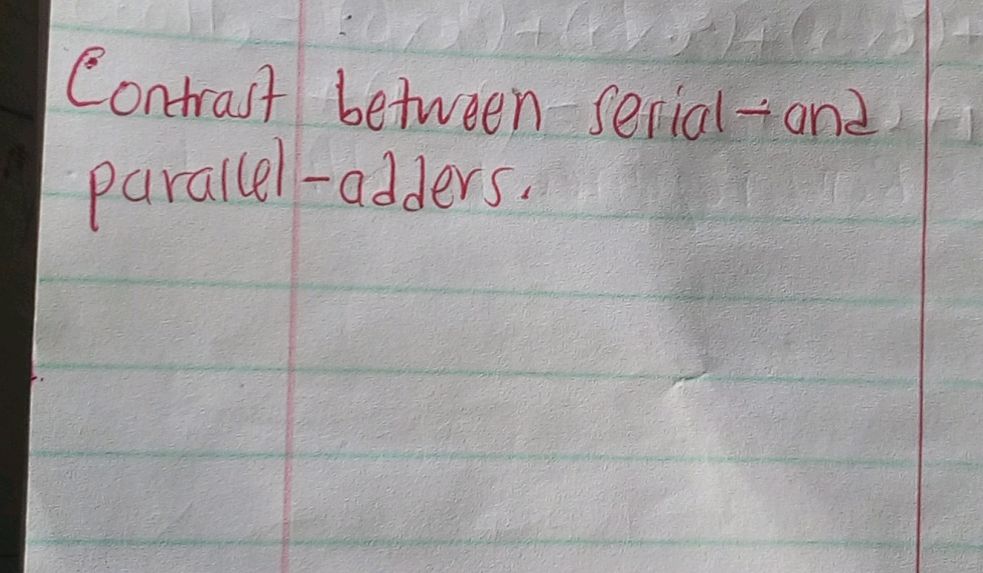 Contrast between serial - and
parallel - adders.